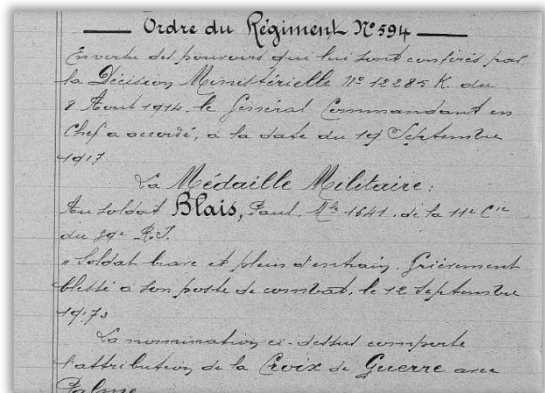 Ordre du Régiment N° 594
En vertu des pouvoirs qui lui sont conférés par
la Décision Ministérielle N° 12285 K. du
8 Août 1914. le Général Commandant en
Chef a accordé, à la date du 19 Septembre
1917
La Médaille Militaire:
Au soldat Blais, Paul. Mle 1641. de la 11e Cie
du 89e R.I.
"Soldat brave et plein d'entrain. Grièvement
blessé à son poste de combat, le 12 septembre
1917"
La nomination ci-dessus comporte
l'attribution de la Croix de Guerre avec
Palme